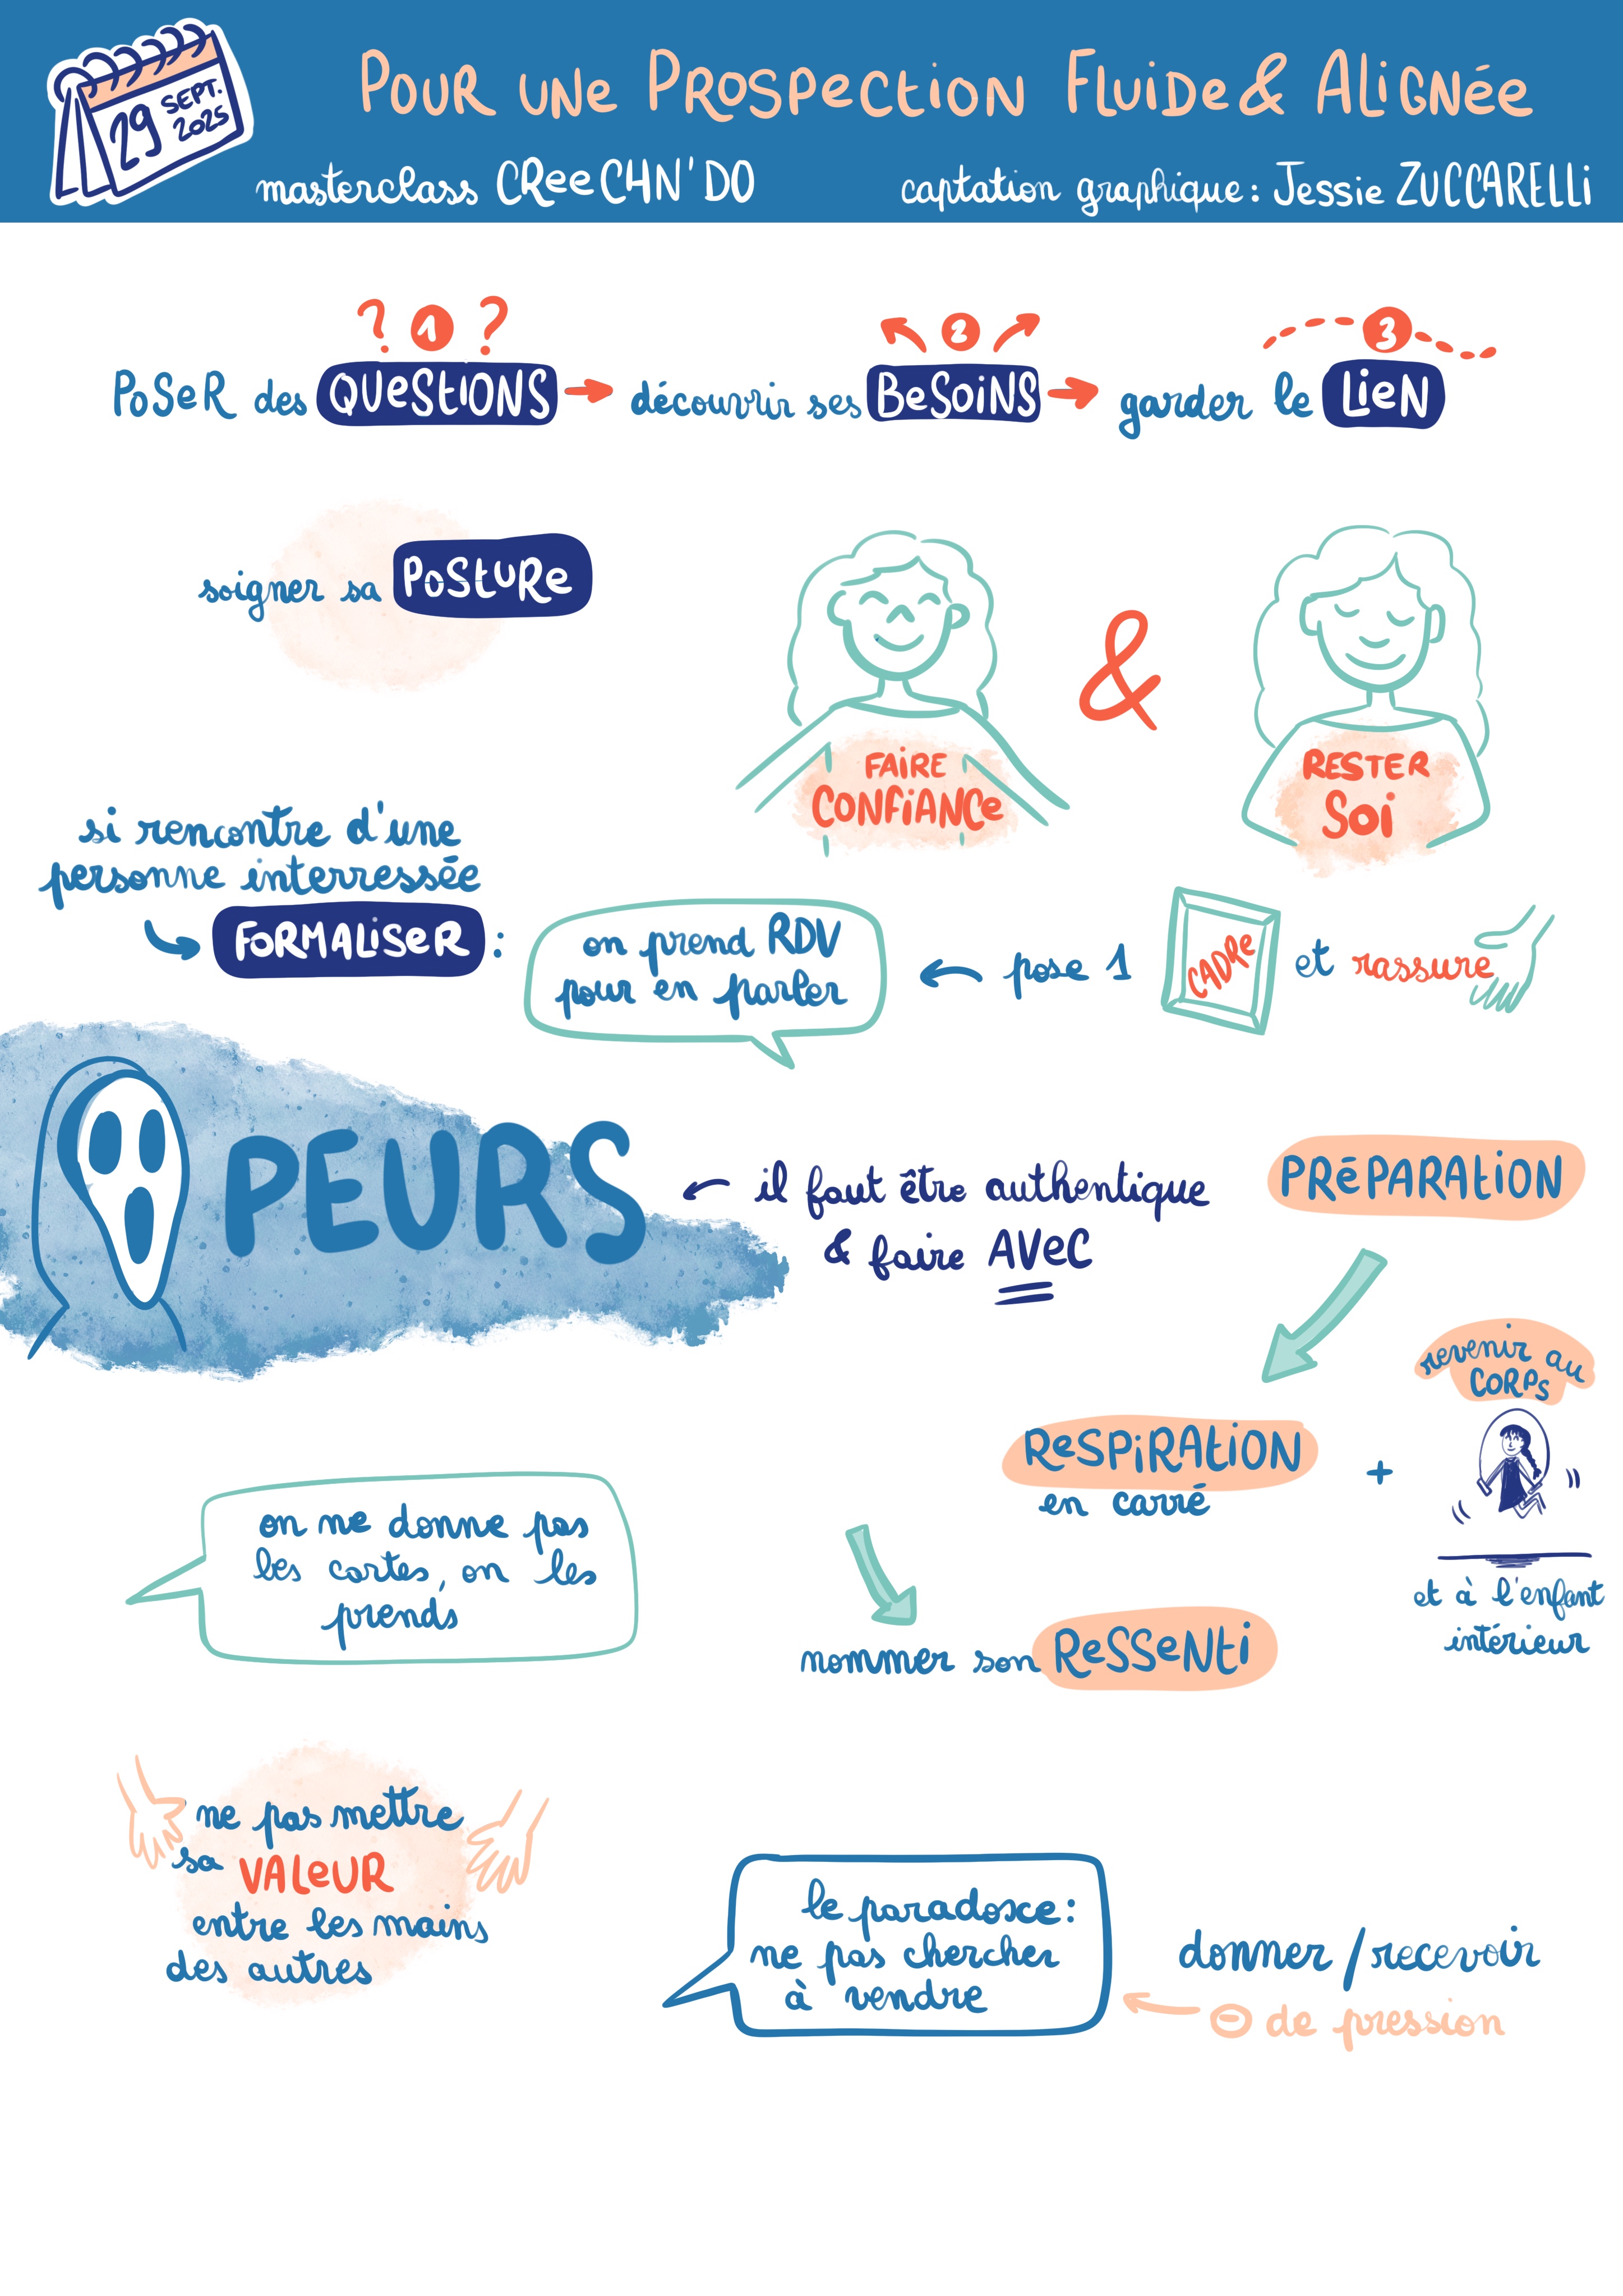 29 SEPT. 2025
POUR UNE PROSPECTION FLUIDE & ALIGNÉE
masterclass CReeCHN'DO
captation graphique : Jessie ZUCCARELLI
? 1 ?
2
3
POSER des QUESTIONS → découvrir ses BESOINS → garder le LIEN
soigner sa POSTURE
FAIRE
CONFIANCE
&
RESTER
SOI
si rencontre d'une
personne interressée
FORMALISER :
on prend RDV
pour en parler
← pose 1 CADRE et rassure
PEURS
← il faut être authentique
& faire AVEC
PRÉPARATION
revenir au
CORPS
RESPIRATION
en carré
+
et à l'enfant
intérieur
on ne donne pas
les cartes, on les
prends
nommer son RESSENTI
ne pas mettre
sa VALEUR
entre les mains
des autres
le paradoxe :
ne pas chercher
à vendre
donner / recevoir
← ⊖ de pression